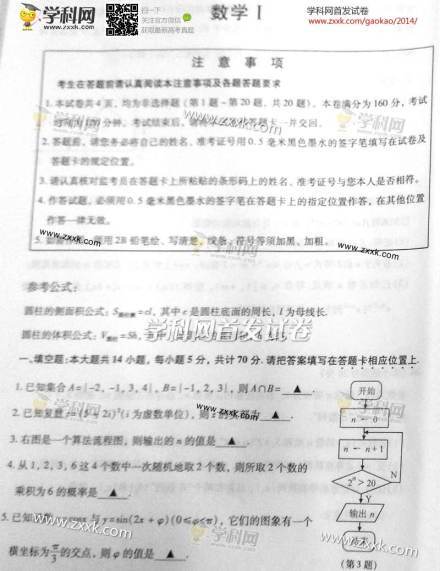 学科网
www.zxxk.com
扫一下
关注官方微信
获取最新高考真题
数学Ⅰ
学科网首发试卷
www.zxxk.com/gaokao/2014/
注意事项
考生在答题前请认真阅读本注意事项及各题答题要求
1.本试卷共4页,均为非选择题(第1题~第20题,共20题)。本卷满分为160分,考试
时间为120分钟。考试结束后,请将本试卷和答题卡一并交回。
2.答题前,请您务必将自己的姓名、准考证号用0.5毫米黑色墨水的签字笔填写在试卷及
答题卡的规定位置。
3.请认真核对监考员在答题卡上所粘贴的条形码上的姓名、准考证号与您本人是否相符。
4.作答试题,必须用0.5毫米黑色墨水的签字笔在答题卡上的指定位置作答,在其他位置
作答一律无效。
5.如需作图,须用2B铅笔绘、写清楚,线条、符号等须加黑、加粗。
参考公式:
圆柱的侧面积公式:S圆柱侧=cl,其中c是圆柱底面的周长,l为母线长.
圆柱的体积公式:V圆柱=Sh,
学科网首发试卷
一、填空题:本大题共14小题,每小题5分,共计70分.请把答案填写在答题卡相应位置上.
1.已知集合A={-2,-1,3,4},B={-1,2,3},则A∩B=▲.
2.已知复数z=(5+2i)²(i为虚数单位),则z的实部为▲.
3.右图是一个算法流程图,则输出的n的值是▲.
4.从1,2,3,6这4个数中一次随机地取2个数,则所取2个数的
乘积为6的概率是▲.
5.已知函数y=cosx与y=sin(2x+φ)(0≤φ<π),它们的图象有一个
横坐标为π/3的交点,则φ的值是▲.
开始
n←0
n←n+1
2ⁿ>20
N
Y
输出n
结束
(第3题)